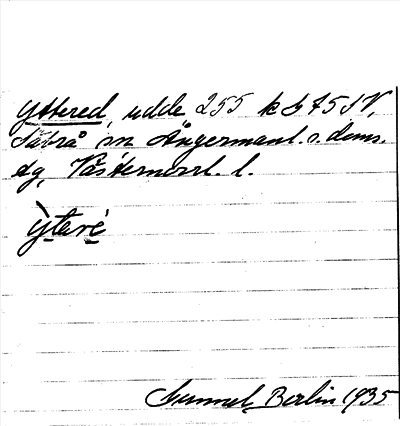 Yttered, udde 255 k b 75 SV,
Säbrå sn Ångermanl. s. doms.
dg, Västernorrl. l.
ỳterè
Gunnel Berlin 1935